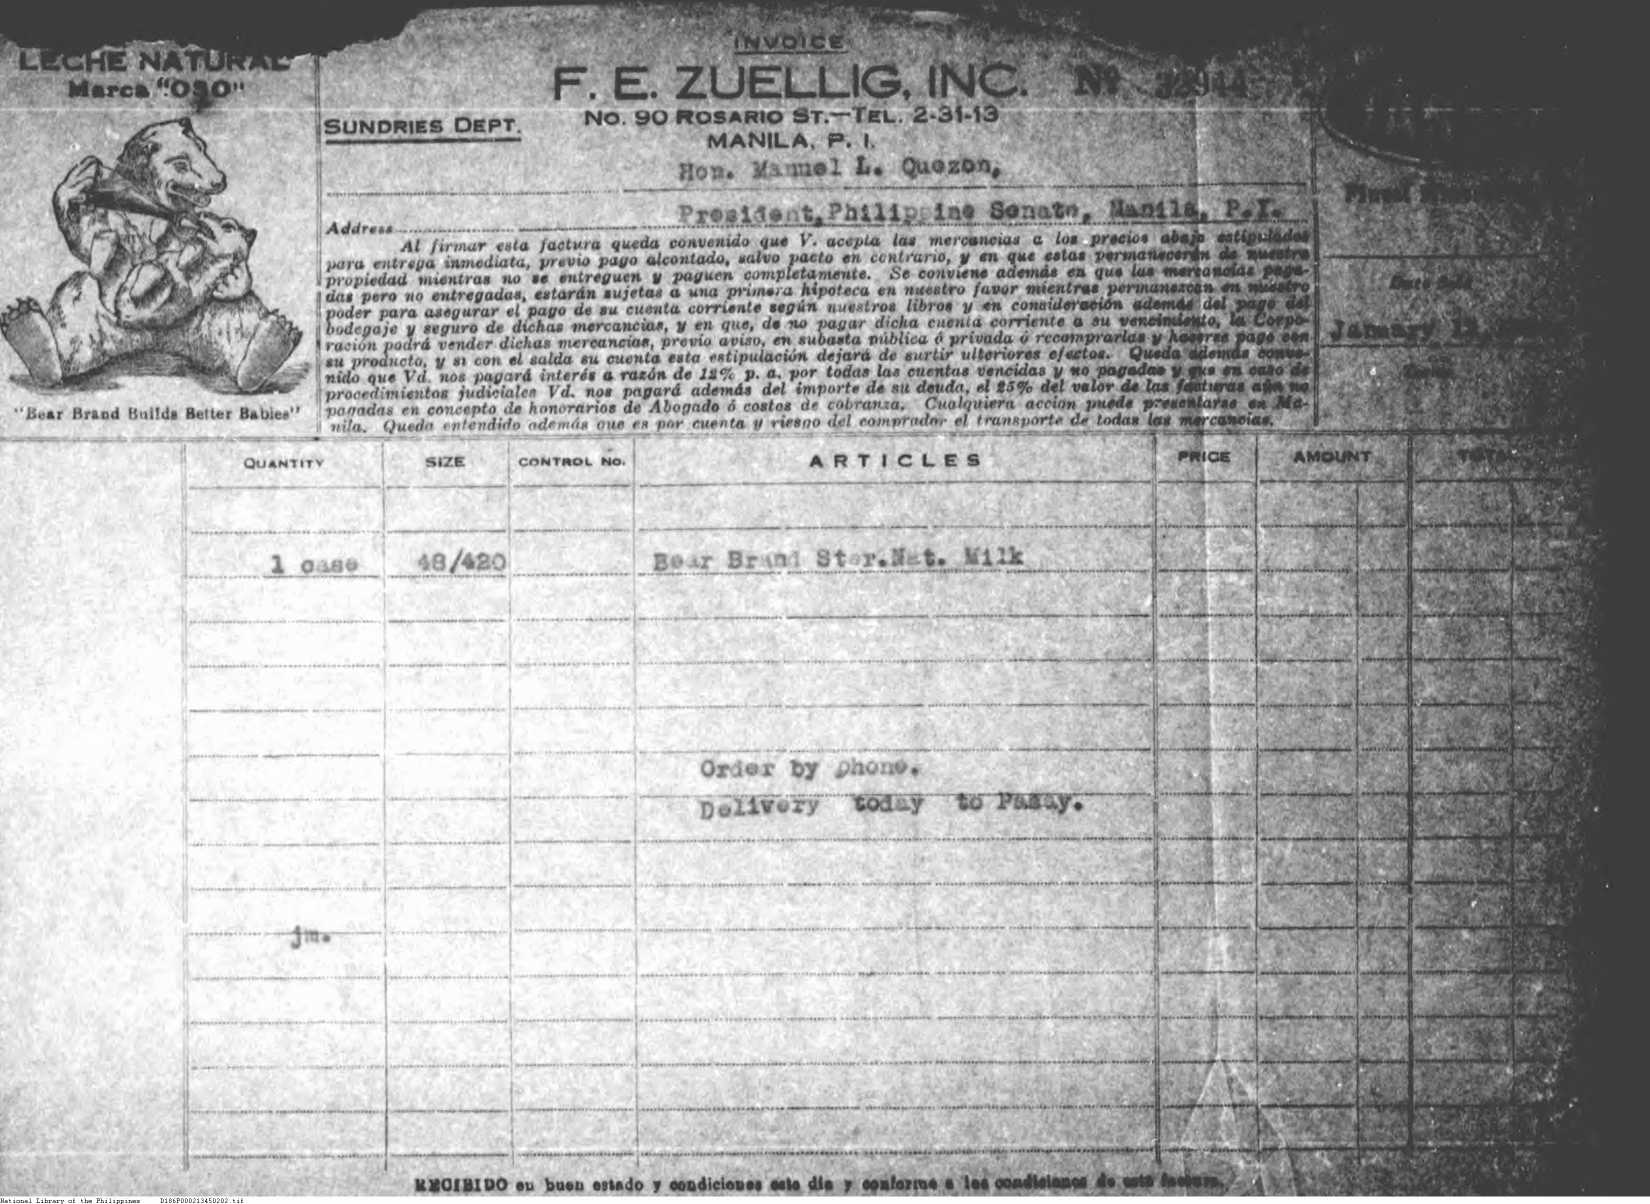 LECHE NATURAL
Marca "OSO"
"Bear Brand Builds Better Babies"
INVOICE
F. E. ZUELLIG, INC.
Nº
SUNDRIES DEPT.
No. 90 ROSARIO ST.—TEL. 2-31-13
MANILA, P. I.
Hon. Manuel L. Quezon,
President, Philippine Senate, Manila, P.I.
Address
Al firmar esta factura queda convenido que V. acepta las mercancias a los precios abajo estipulados
para entrega inmediata, previo pago alcontado, salvo pacto en contrario, y en que estas permanecerán de nuestra
propiedad mientras no se entreguen y paguen completamente. Se conviene además en que las mercancias paga-
das pero no entregadas, estarán sujetas a una primera hipoteca en nuestro favor mientras permanezcan en nuestro
poder para asegurar el pago de su cuenta corriente según nuestros libros y en consideración además del pago del
bodegaje y seguro de dichas mercancias, y en que, de no pagar dicha cuenta corriente a su vencimiento, la Corpo-
ración podrá vender dichas mercancias, previo aviso, en subasta pública ó privada ó recomprarlas y hacerse pago con
su producto, y si con el salda su cuenta esta estipulación dejará de surtir ulteriores efectos. Queda además conve-
nido que Vd. nos pagará interés a razón de 12% p. a. por todas las cuentas vencidas y no pagadas y que en caso de
procedimientos judiciales Vd. nos pagará además del importe de su deuda, el 25% del valor de las facturas aún no
pagadas en concepto de honorarios de Abogado ó costos de cobranza. Cualquiera accion puede presentarse en Ma-
nila. Queda entendido además que es por cuenta y riesgo del comprador el transporte de todas las mercancias.
Date Sold
January
QUANTITY SIZE CONTROL No. ARTICLES PRICE AMOUNT
1 case 48/420 Bear Brand Ster.Nat. Milk
Order by phone.
Delivery today to Pasay.
jm.
RECIBIDO en buen estado y condiciones este dia y conforme a las condiciones de esta factura.
National Library of the Philippines D186P000213450202.tif